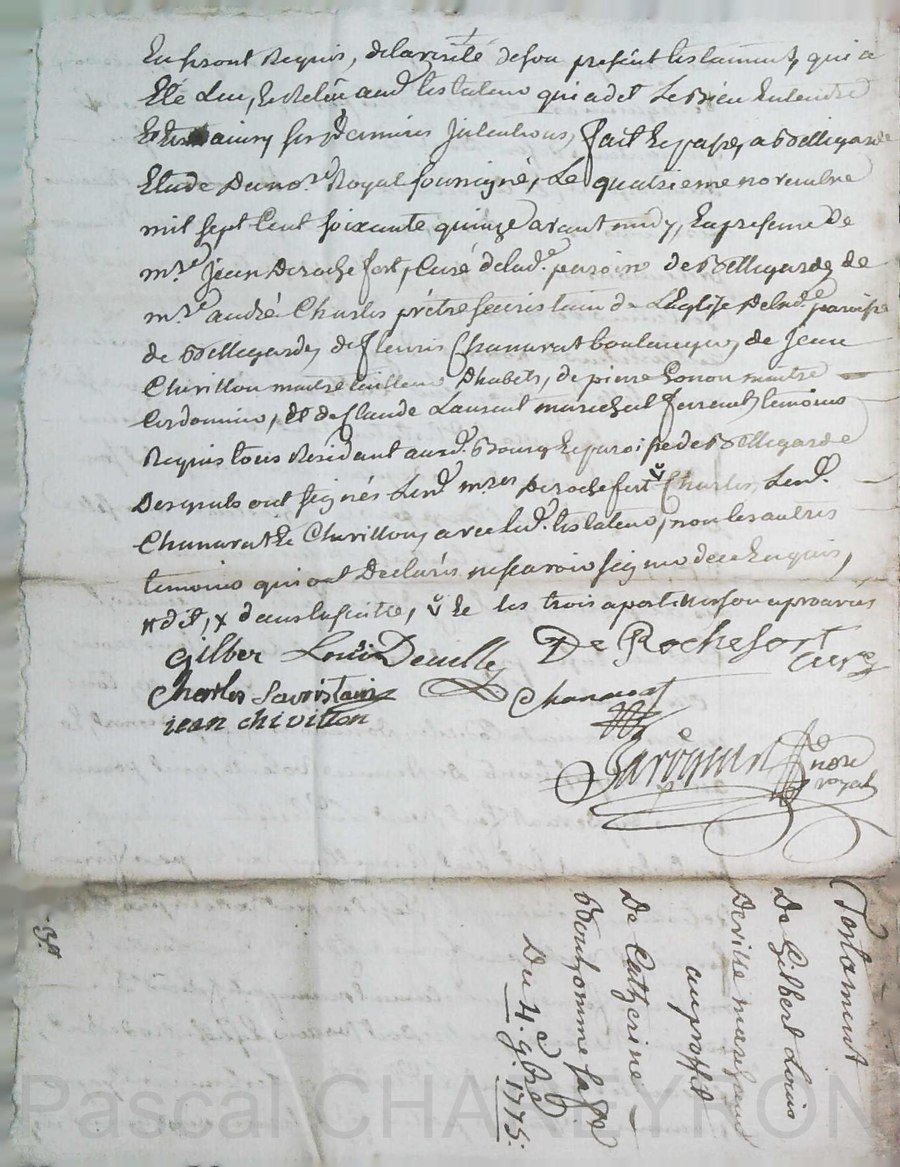 En seront Requis, de la verité de son present testament, qui a
Eté Leu, et Releu aud. testateur qui a dit Le bien Entendre
Et Ses dernieres Intentions, fait et passé, a Bellegarde
Etude du nore. Royal soussigné, Le quatrieme novembre
mil sept Cent soixante quinze avant midy, En presence De
mre. Jean Derochefort, Curé de lad. paroisse de Bellegarde, de
mre. andré Charles prêtre Secristain de L'Eglise de lad. paroisse
de Bellegarde, de fleuris Chanavat boulanger, de Jean
Chivillon maitre tailleur d'habits, de pierre Gonon maitre
Cordonnier, Et de Claude Laurent marechal ferrent, temoins
Requis tous Residant aud. Bourg et paroisse de Bellegarde
Desquels ont signés Lesd. mres Derochefort ѷ Charles, Lesd.
Chanavat et Chivillon, avec led. testateur, non les autres
temoins qui ont Declarés ne scavoir signer de ce Enquis,
# dit, x dans la suitte, ѷ et les trois apostilles son aprouvés
Gilber Louis Deville De Rochefort Curé
Charles Sacristain Chanavat
jean chivillon
nore
royal
Testament
De Gilbert Louis
Deville marchand
au proffit
De Catherine
Bonhomme sa fe
Du 4. 9bre 1775.
Pascal CHAMEYRON